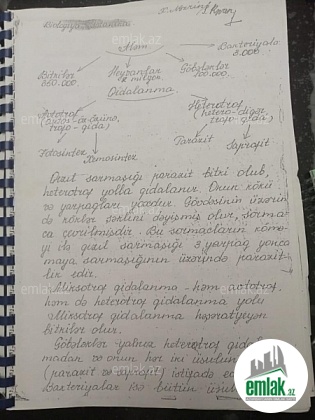 I Kurs
Aləm
Bakteriyalar
3.000
Bitkilər
350.000
Heyvanlar
2 milyon
Göbələklər
100.000
Qidalanma
Avtotrof
trofo-qida)
Heterotrof
(hetero-digər,
trofo-qida)
Fotosintez
Xemosintez
Parazit
Saprofit
Qızıl sarmaşığı parazit bitki olub,
heterotrof yolla qidalanır. Onun kökü
və yarpaqları yoxdur. Gövdəsinin üzərin
də köklər şəklini dəyişmiş olur, sorma
ca çevrilmişdir. Bu sormacların kömə
yi də qızıl sarmaşığı 3 yarpaq yonca
maya sarmaşığının üzərində parazit
lik edir.
Miksotrof qidalanma - həm avtotrof,
həm də heterotrof qidalanma yolu
Miksotrof qidalanma həşəratyeyən
bitkilər olur.
Göbələklər yalnız heterotrof qida
madan və onun hər iki üsulun
(parazit və saprofit) istifadə ed
Bakteriyalar isə bütün üsul
emlak.az